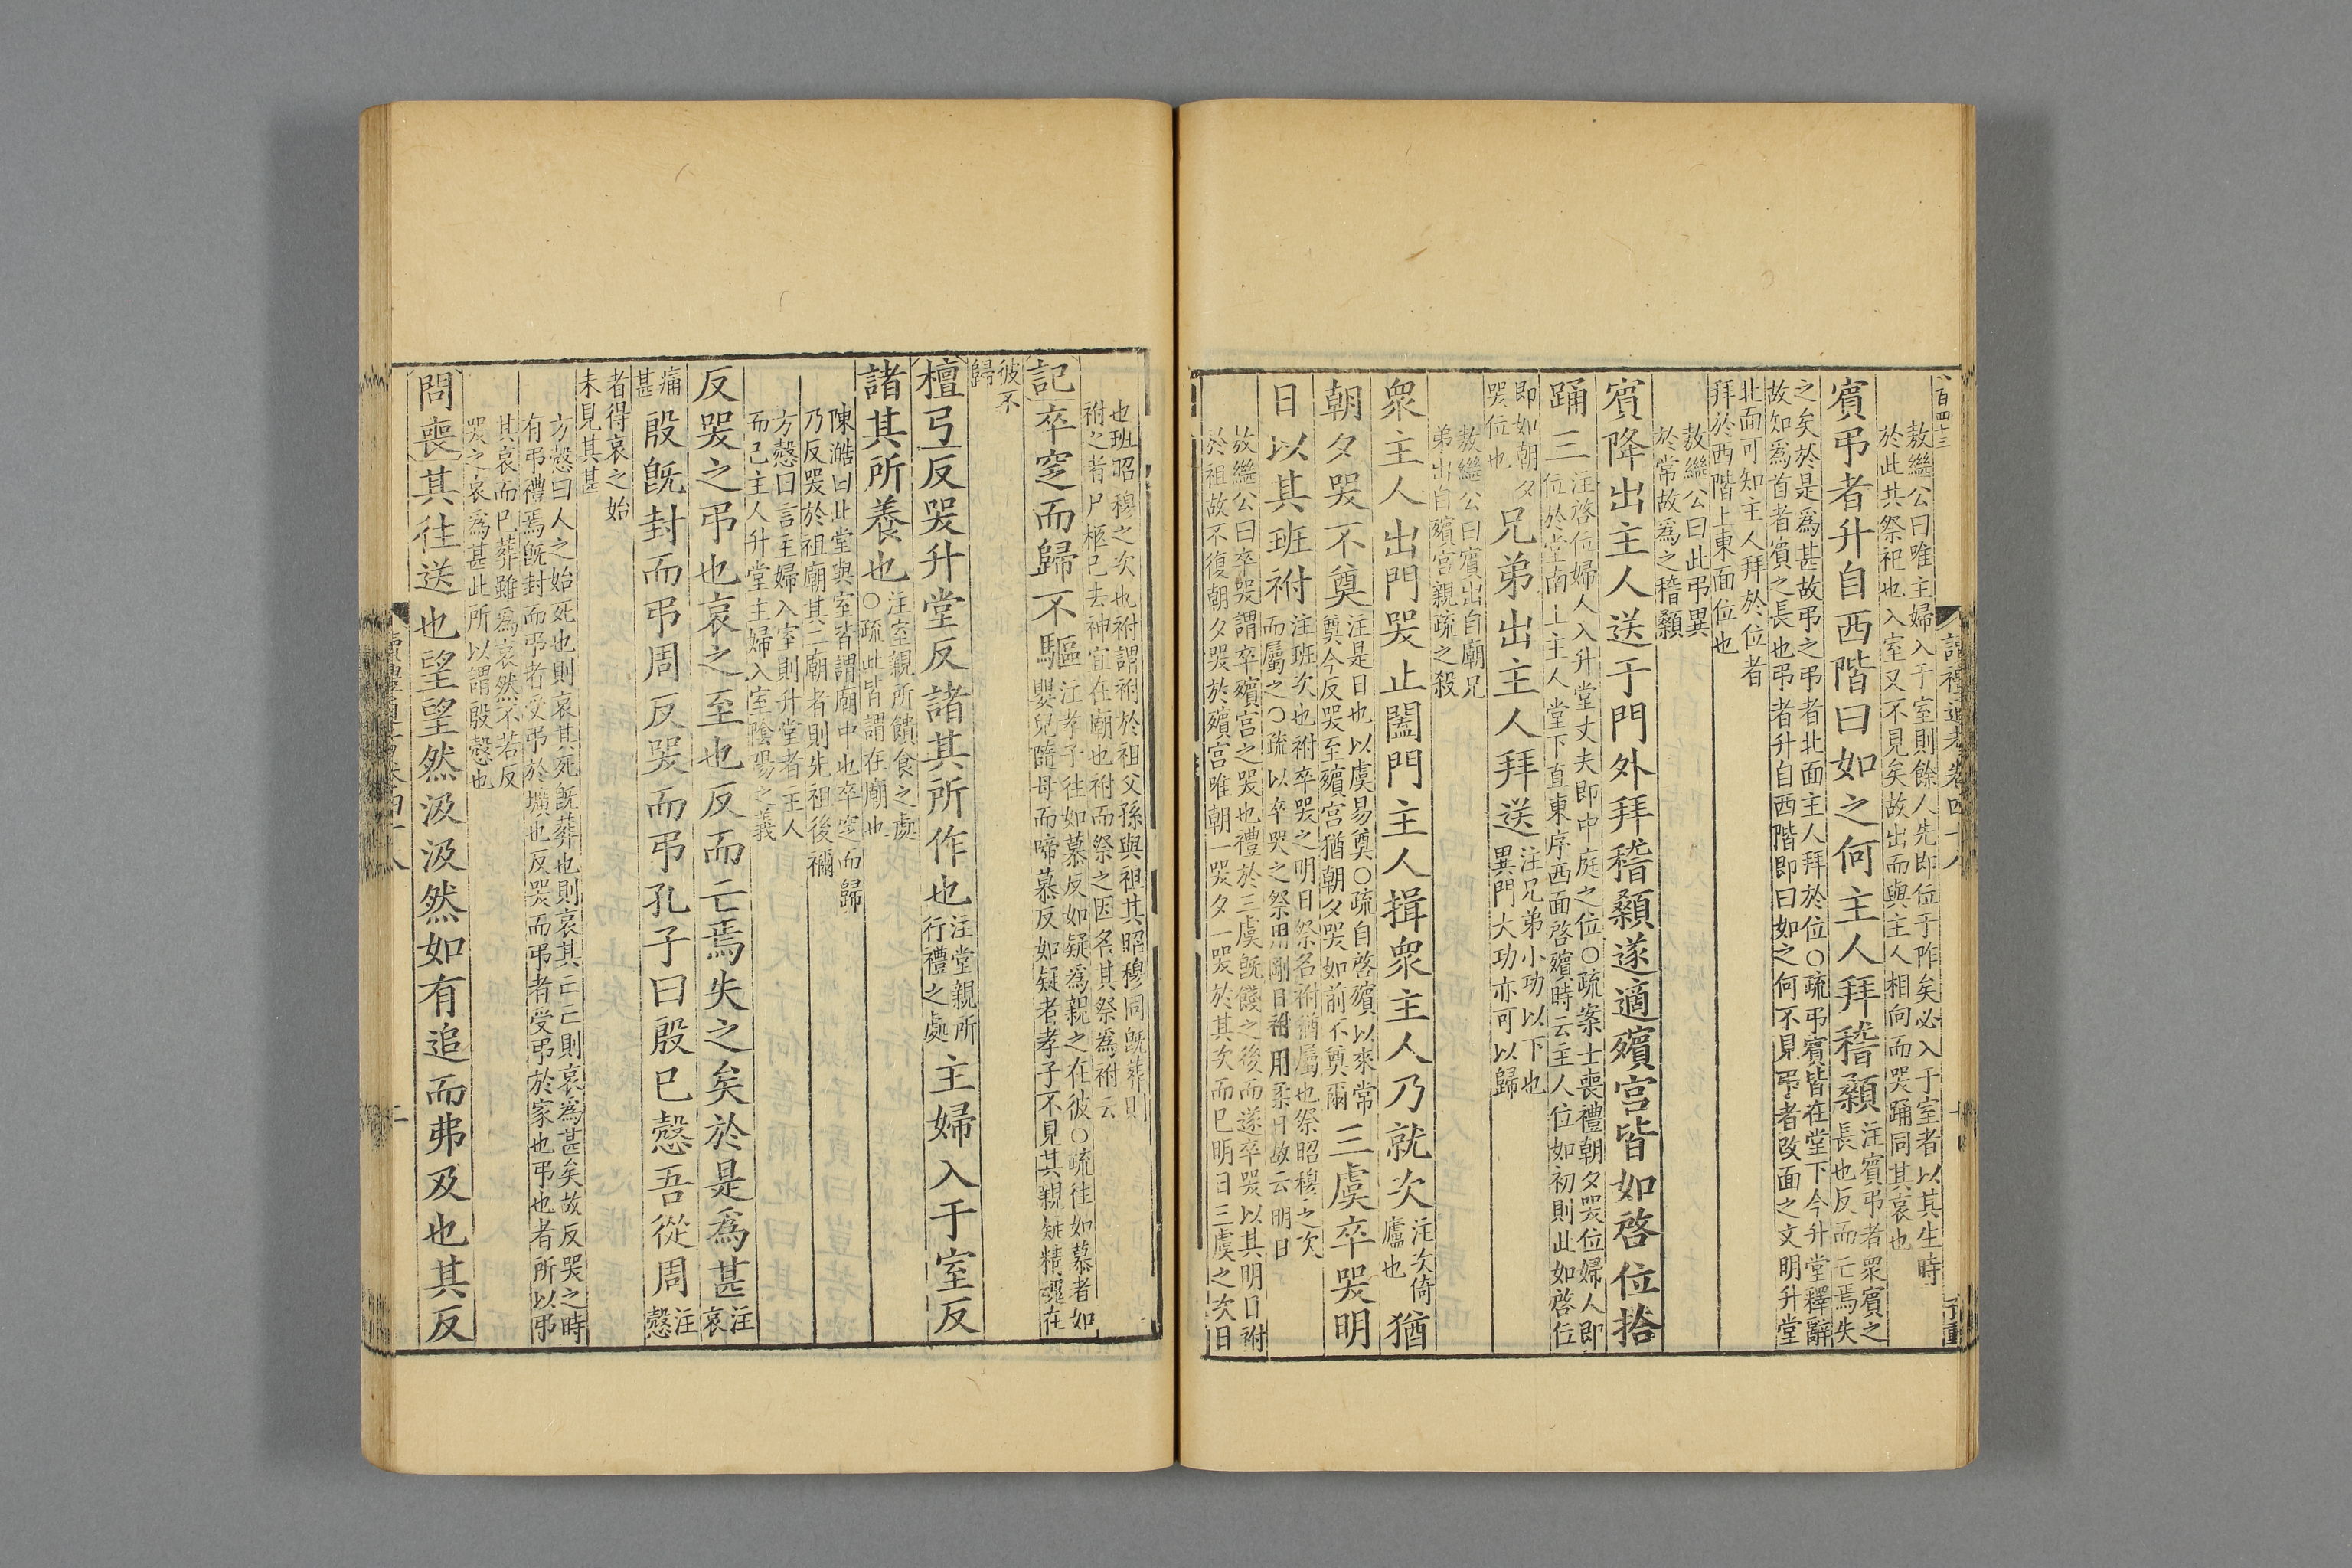 八百四十三
敖繼公曰唯主婦入于室則餘人先即位于阼矣必入于室者以其生時
於此共祭祀也入室又不見矣故出而與主人相向而哭踊同其哀也
賔弔者升自西階曰如之何主人拜稽顙注賔弔者眾賔之
長也反而亡焉失
之矣於是爲甚故弔之弔者北面主人拜於位○疏弔賔皆在堂下今升堂釋辭
故知爲首者賔之長也弔者升自西階即曰如之何不見弔者改面之文明升堂
北面可知主人拜於位者
拜於西階上東面位也
敖繼公曰此弔異
於常故爲之稽顙
賔降出主人送于門外拜稽顙遂適殯宮皆如啓位拾
踊三注啓位婦人入升堂丈夫即中庭之位○疏案士喪禮朝夕哭位婦人即
位於堂南上主人堂下直東序西面啓殯時云主人位如初則此如啓位
即如朝夕
哭位也
兄弟出主人拜送注兄弟小功以下也
異門大功亦可以歸
敖繼公曰賔出自廟兄
弟出自殯宮親疏之殺
衆主人出門哭止闔門主人揖衆主人乃就次注次倚
廬也
猶
朝夕哭不奠注是日也以虞易奠○疏自啓殯以來常
奠今反哭至殯宮猶朝夕哭如前不奠爾
三虞卒哭明
日以其班祔注班次也祔卒哭之明日祭名祔猶屬也祭昭穆之次
而屬之○疏以卒哭之祭用剛日祔用柔日故云明日
敖繼公曰卒哭謂卒殯宮之哭也禮於三虞旣餞之後而遂卒哭以其明日祔
於祖故不復朝夕哭於殯宮唯朝一哭夕一哭於其次而已明日三虞之次日
也班昭穆之次也祔謂祔於祖父孫與祖其昭穆同旣葬則
祔之者尸柩已去神宜在廟也祔而祭之因名其祭爲祔云
記卒窆而歸不驅注孝子往如慕反如疑爲親之在彼○疏往如慕者如
嬰兒隨母而啼慕反如疑者孝子不見其親疑精魂在
彼不
歸
檀弓反哭升堂反諸其所作也注堂親所
行禮之處
主婦入于室反
諸其所養也注室親所饋食之處
○疏此皆謂在廟也
陳澔曰此堂與室皆謂廟中也卒窆而歸
乃反哭於祖廟其二廟者則先祖後禰
方慤曰言主婦入室則升堂者主人
而已主人升堂主婦入室陰陽之義
反哭之弔也哀之至也反而亡焉失之矣於是爲甚注
哀
痛
甚
殷旣封而弔周反哭而弔孔子曰殷已慤吾從周注
慤
者得哀之始
未見其甚
方慤曰人之始死也則哀其死旣葬也則哀其亡亡則哀爲甚矣故反哭之時
有弔禮焉旣封而弔者受弔於壙也反哭而弔者受弔於家也弔也者所以弔
其哀而已葬雖爲哀然不若反
哭之哀爲甚此所以謂殷慤也
問喪其往送也望望然汲汲然如有追而弗及也其反
讀禮通考卷四十八